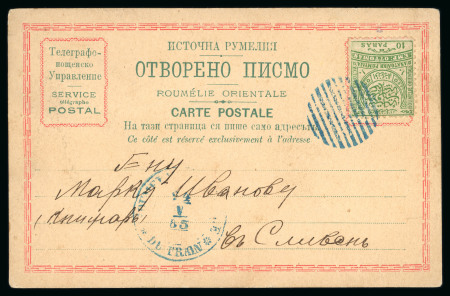 Телеграфо-
пощенско
Управление
SERVICE
télégrapho
POSTAL
ИСТОЧНА РУМЕЛИЯ
ОТВОРЕНО ПИСМО
ROUMÉLIE ORIENTALE
CARTE POSTALE
На тази страница се пише само адресътъ
Ce côté est réservé exclusivement à l'adresse
10
PARAS
Г-ну
Марку Иванову
(книжаръ)
въ Сливенъ
V
85
DU TRAIN